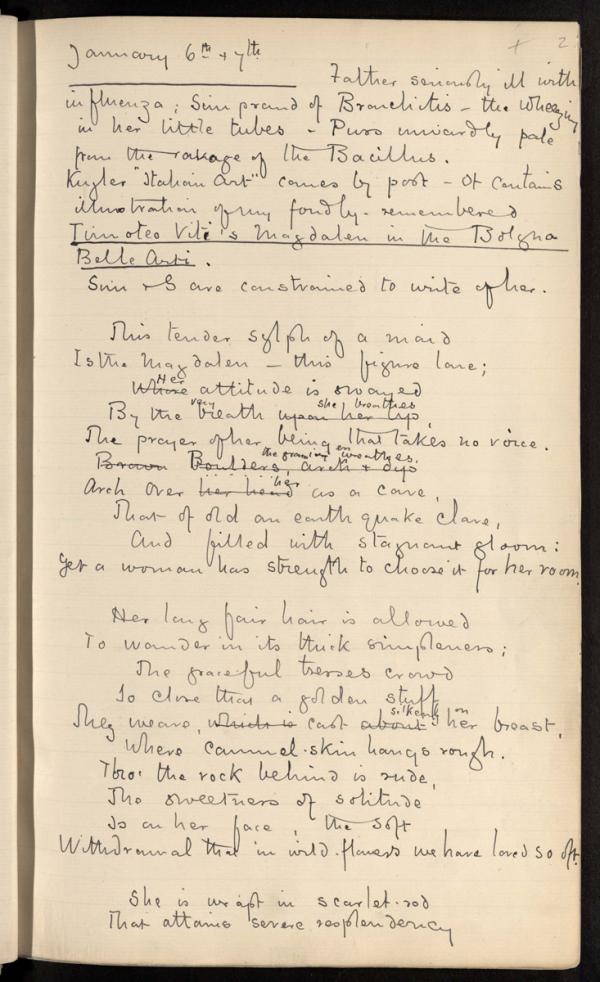 + 2
January 6th + 7th.
Father seriously ill with
influenza; Sim proud of Bronchitis – the wheezing
in her little tubes – Puss inwardly pale
from the ravage of the Bacillus.
Kugler "Italian Art" comes by post – It contains
illustration of my fondly-remembered
Timoteo Viti's Magdalen in the Bologna
Belle Arti.
Sim & I are constrained to write of her.
This tender sylph of a maid
Is the Magdalen – this figure lone;
Her
Whose attitude is swayed
very she breathes
By the breath upon her lip,
The prayer of her being that takes no voice.
the wreathes.
Brown Boulders, arch & dip
her
Arch over her head as a cave,
That of old an earthquake clave,
And filled with stagnant gloom:
Yet a woman has strength to choose it for her room.
Her long fair hair is allowed
To wander in its thick simpleness;
The graceful tresses crowd
So close that a golden stuff
silken on
They weave, which is cast about her breast,
Where cammel-skin hangs rough.
Tho' the rock behind is rude,
The sweetness of solitude
Is on her face, the soft
Withdrawal that in wild-flowers we have loved so oft.
She is wrapt in scarlet-red
That attains severe resplendency